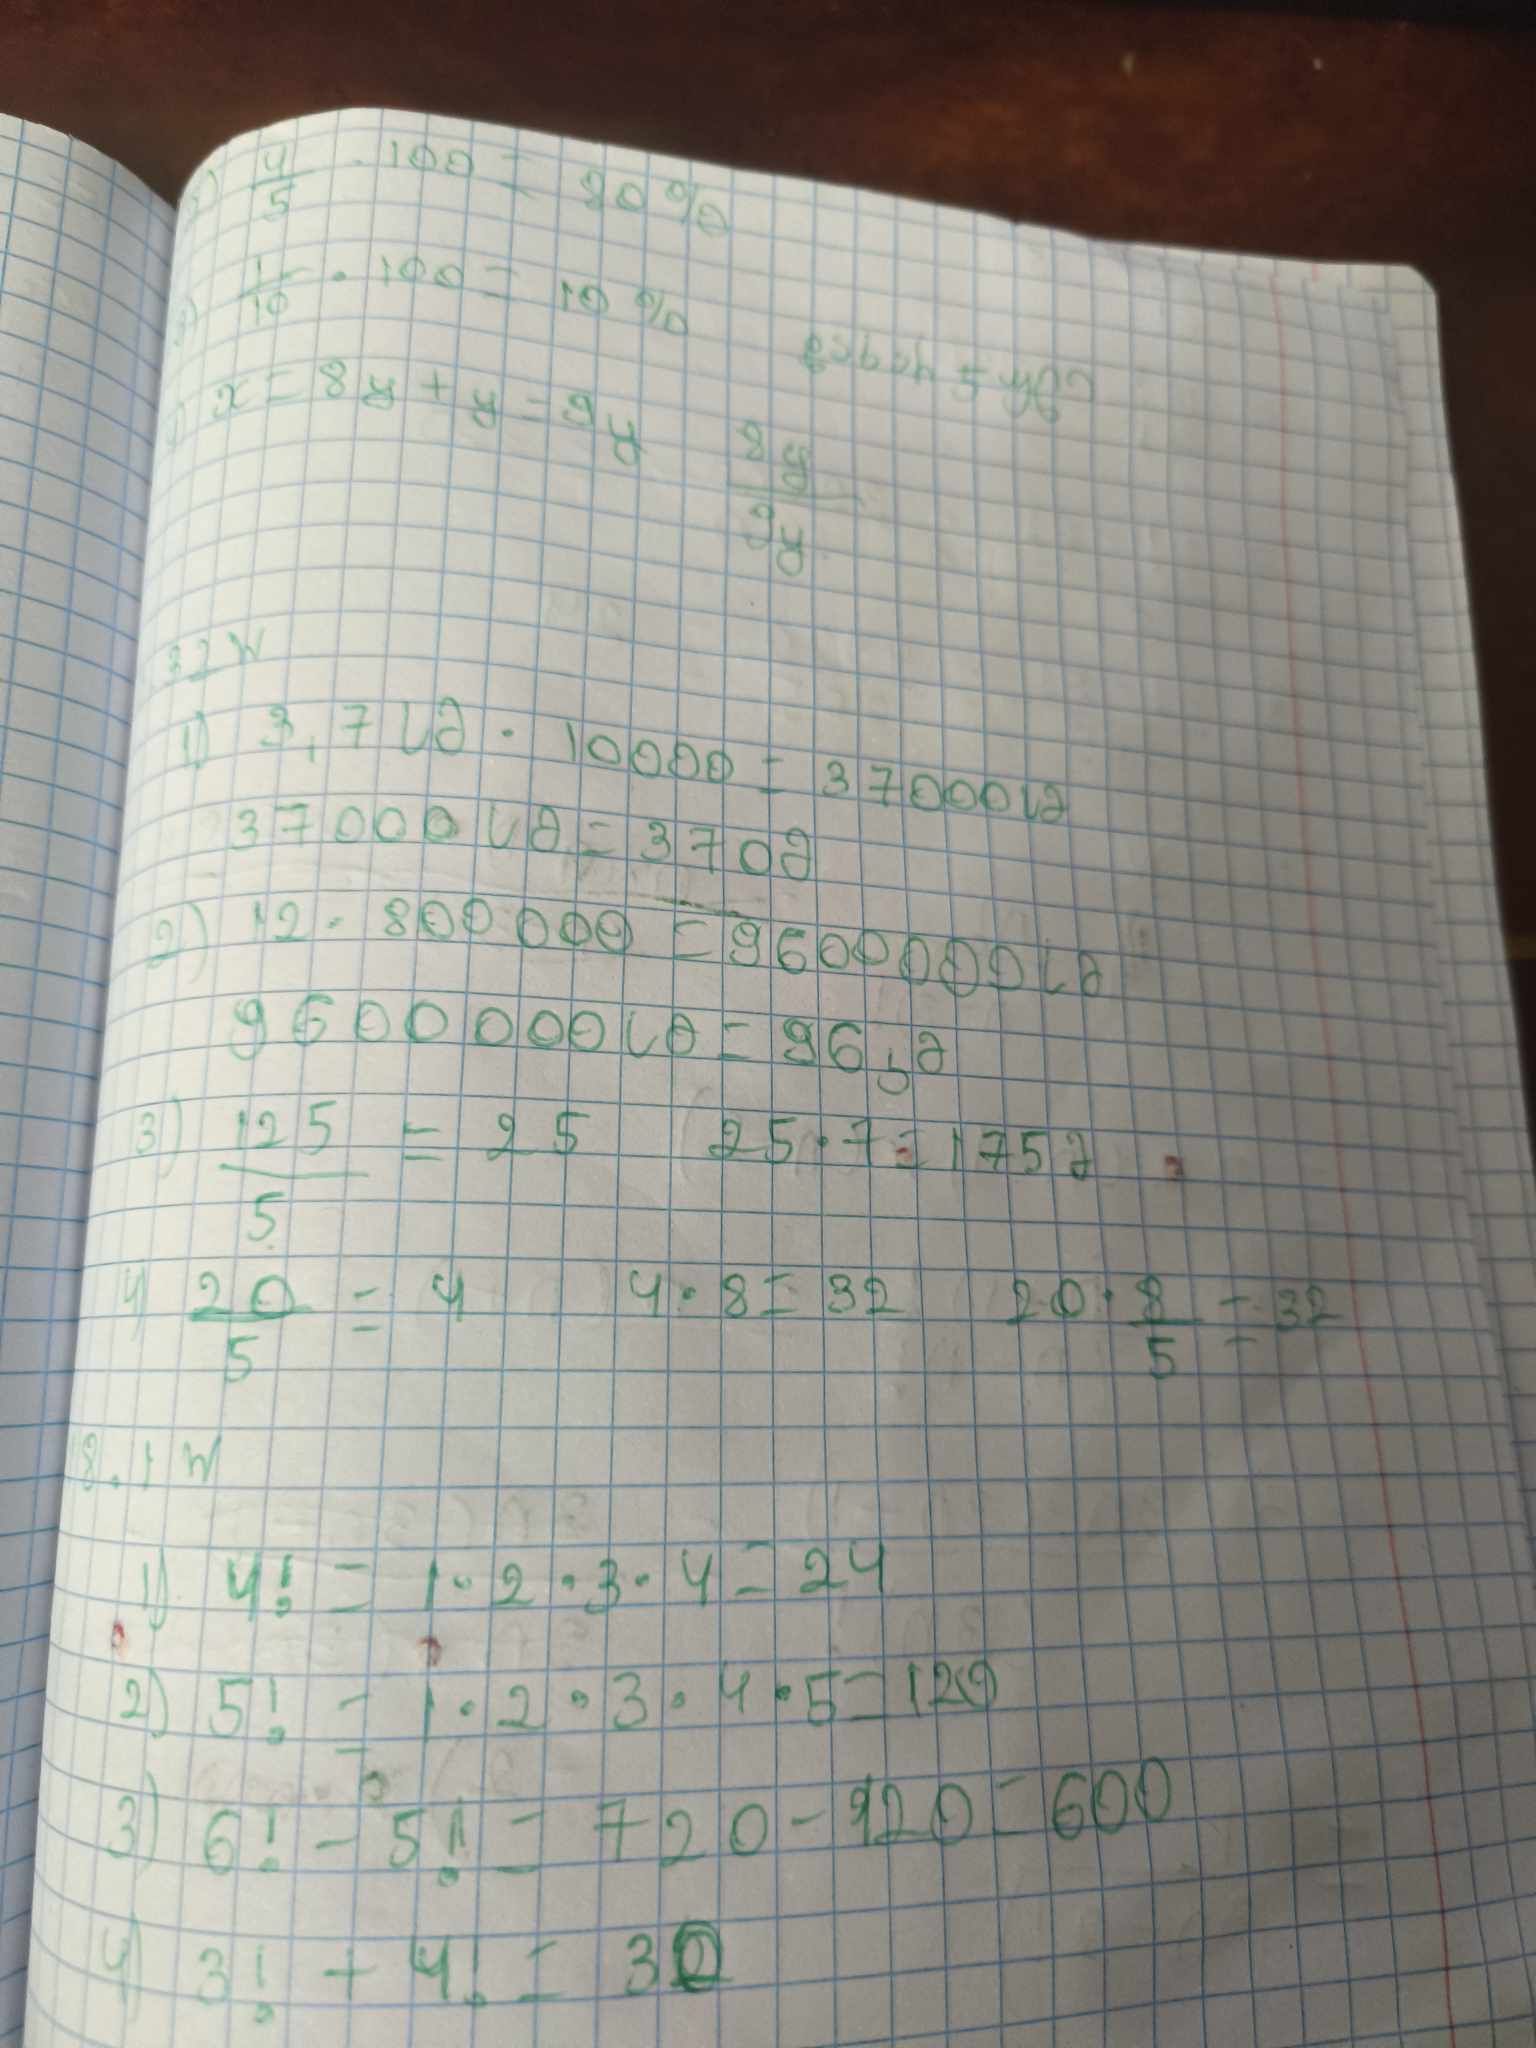 4/5 · 100 = 80%
1/10 · 100 = 10%
x = 8y + y = 9y 8y/9y
1) 3,7 სმ · 10000 = 37000 სმ
37000 სმ = 370მ
2) 12 · 800 000 = 9600000 სმ
9600000 სმ = 96,მ
3) 125/5 = 25 25·7=175მ
4) 20/5 = 4 4·8=32 20·8/5=32
18.1 W
1) 4! = 1·2·3·4=24
2) 5! = 1·2·3·4·5=120
3) 6! - 5! = 720-120=600
4) 3! + 4! = 30